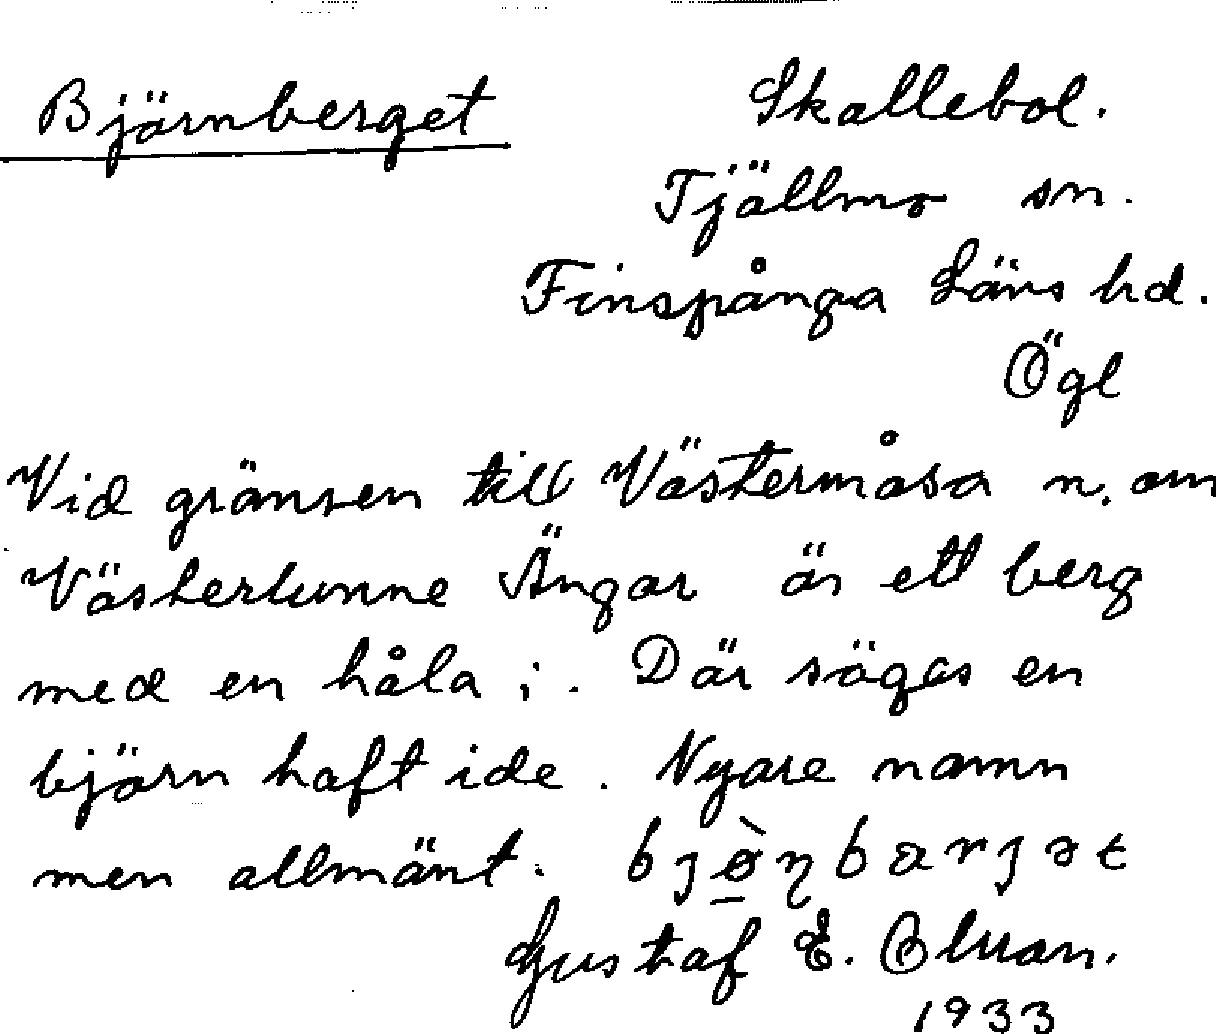 Björnberget Skallebol.
Tjällmo sn.
Finspånga Läns hd.
Ögl
Vid gränsen till Västermåsa n. om
Västerlunne Ängar är ett berg
med en håla i. Där sägas en
björn haft ide. Nyare namn
men allmänt.
Gustaf E.
1933